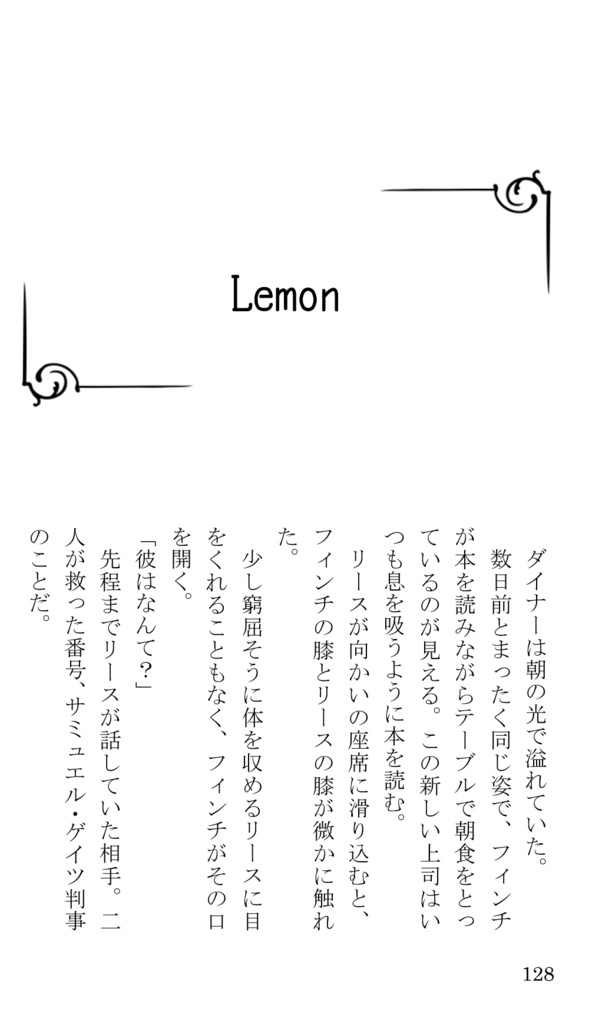 Lemon
ダイナーは朝の光で溢れていた。
数日前とまったく同じ姿で、フィンチ
が本を読みながらテーブルで朝食をとっ
ているのが見える。この新しい上司はい
つも息を吸うように本を読む。
リースが向かいの座席に滑り込むと、
フィンチの膝とリースの膝が微かに触れ
た。
少し窮屈そうに体を収めるリースに目
をくれることもなく、フィンチがその口
を開く。
「彼はなんて？」
先程までリースが話していた相手。二
人が救った番号、サミュエル・ゲイツ判事
のことだ。
128